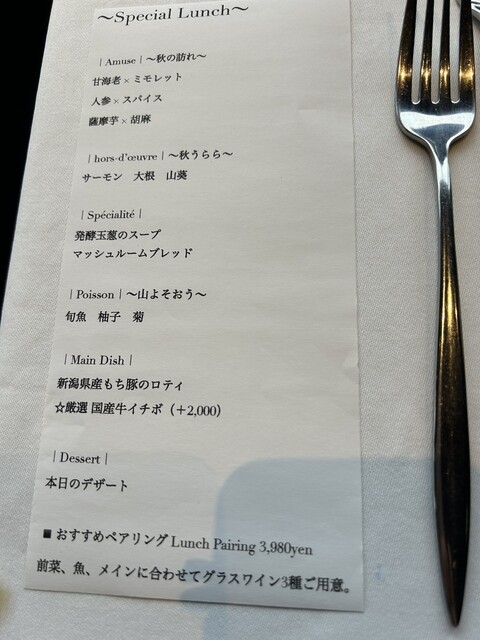 ～Special Lunch～
| Amuse | ～秋の訪れ～
甘海老 × ミモレット
人参 × スパイス
薩摩芋 × 胡麻
| hors-d'œuvre | ～秋うらら～
サーモン 大根 山葵
| Spécialité |
発酵玉葱のスープ
マッシュルームブレッド
| Poisson | ～山よそおう～
旬魚 柚子 菊
| Main Dish |
新潟県産もち豚のロティ
☆厳選 国産牛イチボ（＋2,000）
| Dessert |
本日のデザート
■ おすすめペアリング Lunch Pairing 3,980yen
前菜、魚、メインに合わせてグラスワイン3種ご用意。